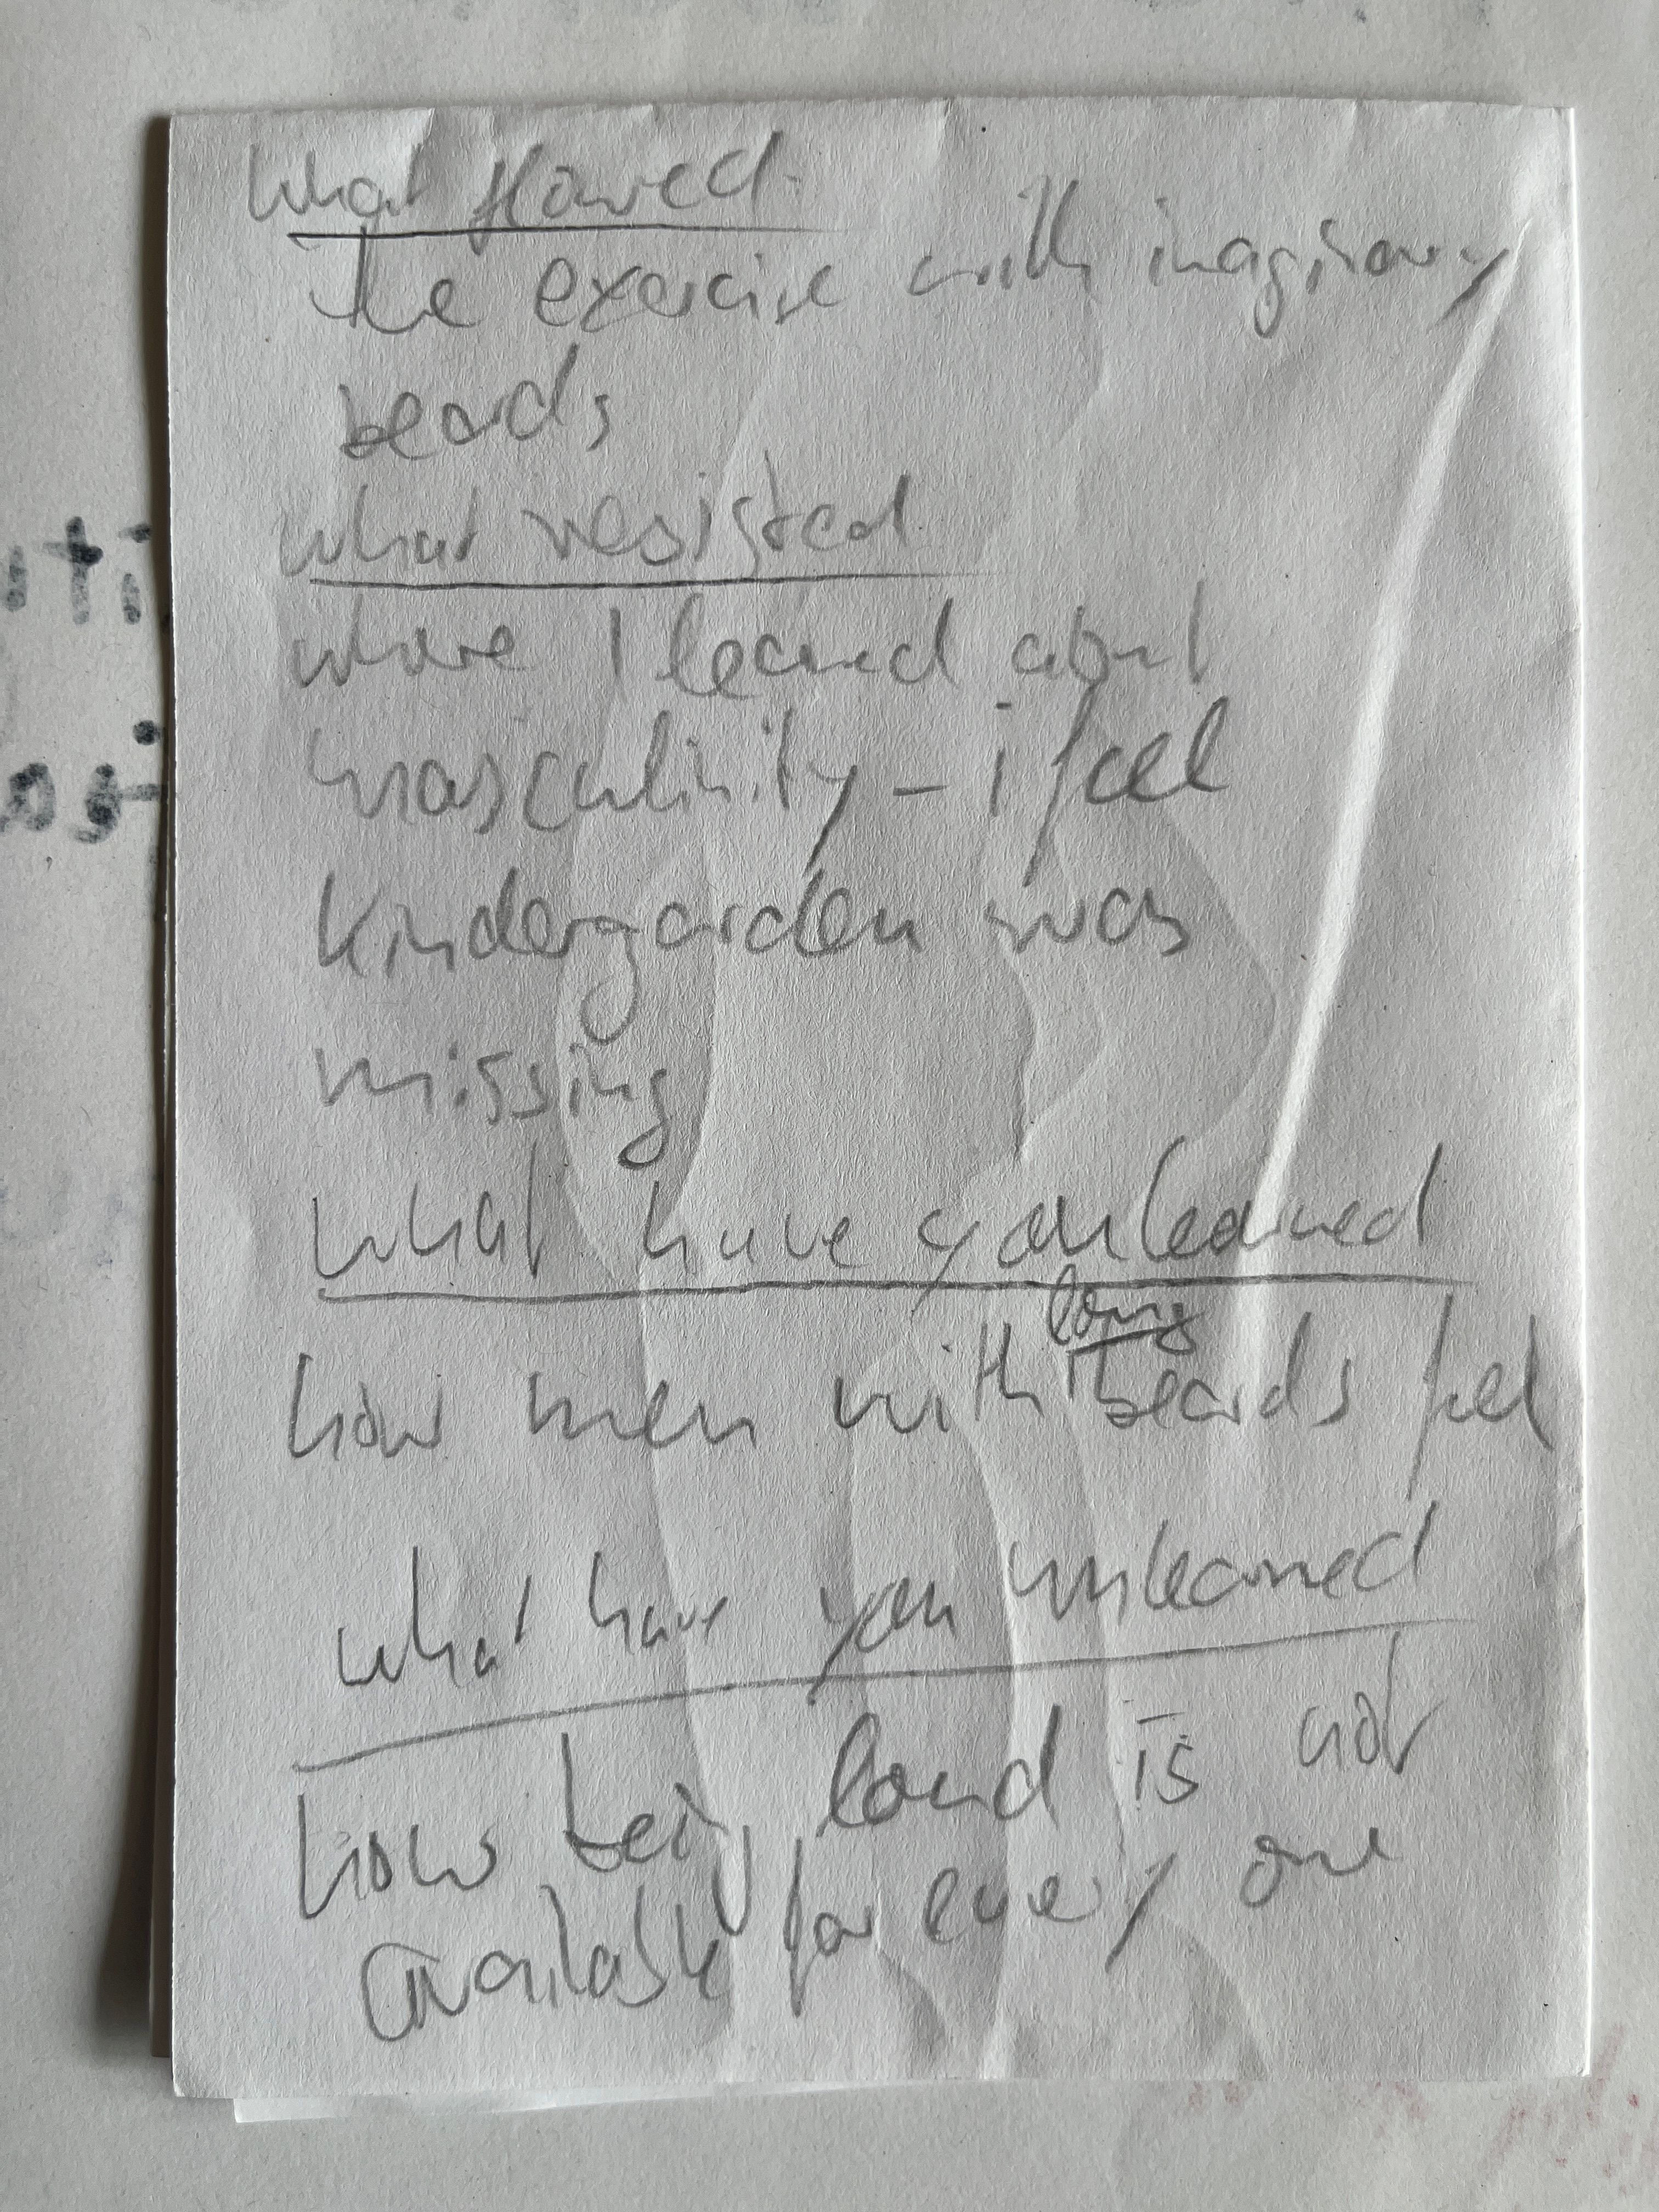 What flowed
the exercise with imaginary
beards
what resisted
where I learned about
masculinity – i feel
Kindergarden was
missing
what have you learned
long
how men with beards feel
what have you unlearned
how being loud is not
available for every one